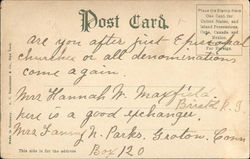 Post Card.
Place the Stamp Here
One Cent for
United States and
Island Possessions
Cuba, Canada and
Mexico
For Foreign
are you after just Episcopal
churches or all denominations
come again.
Mrs Hannah W.
Bristol R.I
here is a good exchanger.
Mrs Fanny N. Parks, Groton, Conn
Box 120
This side is for the address